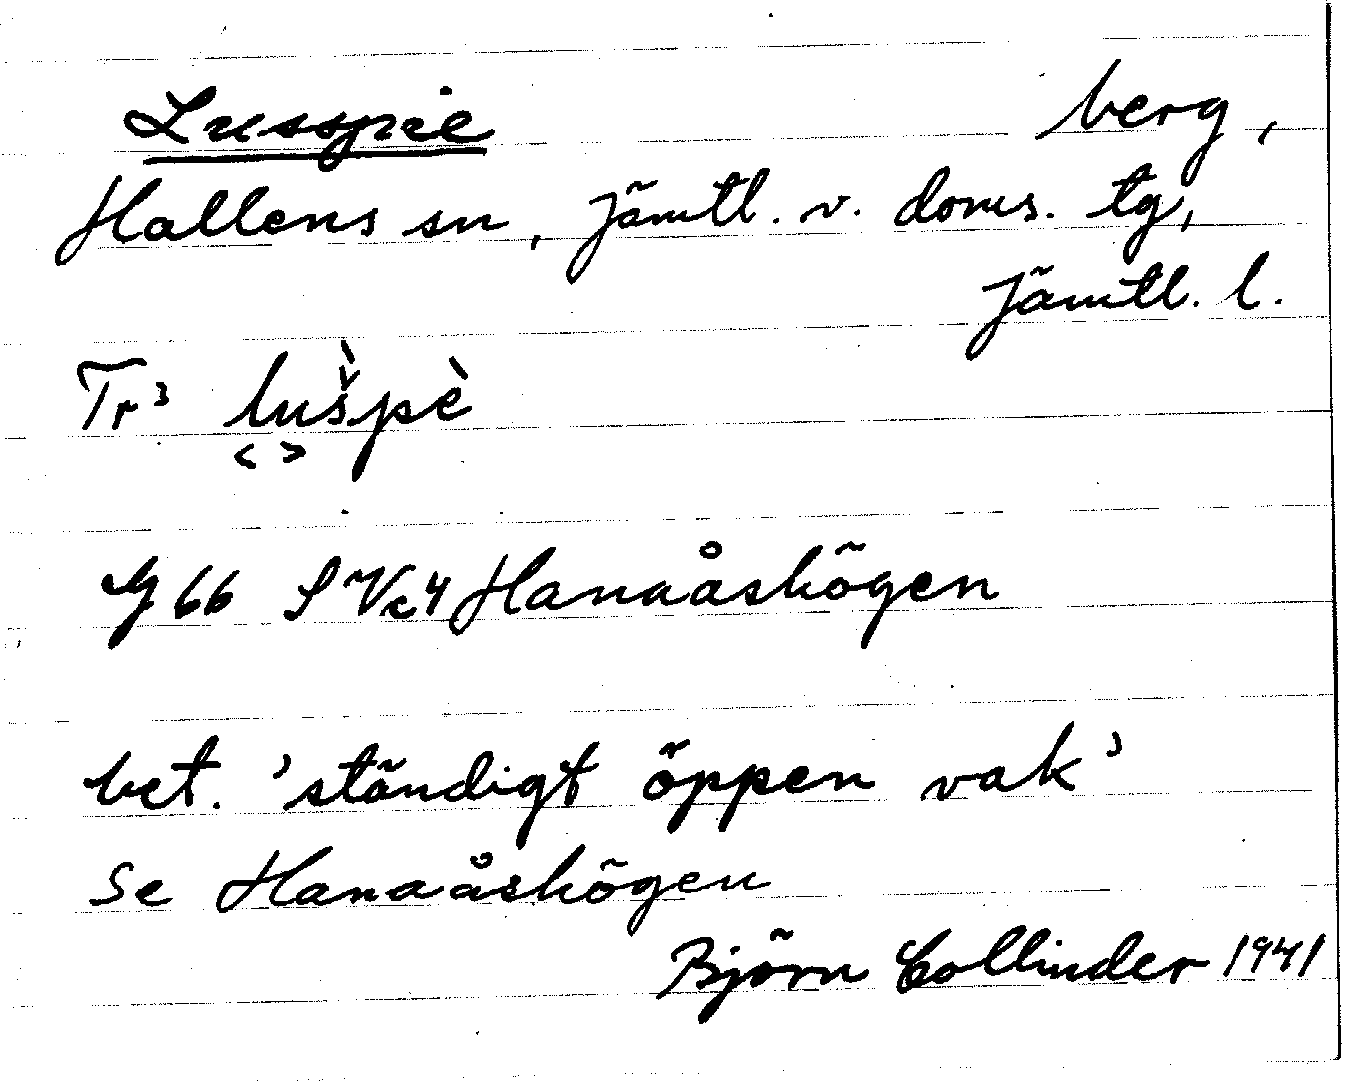 Lusspie berg,
Hallens sn, Jämtl. v. doms. tg,
Jämtl. l.
Tr³ lušpè
G 66 S Vc4 Hanaåshögen
bet. 'ständigt öppen vak'
Se Hanaåshögen
Björn Collinder 1941